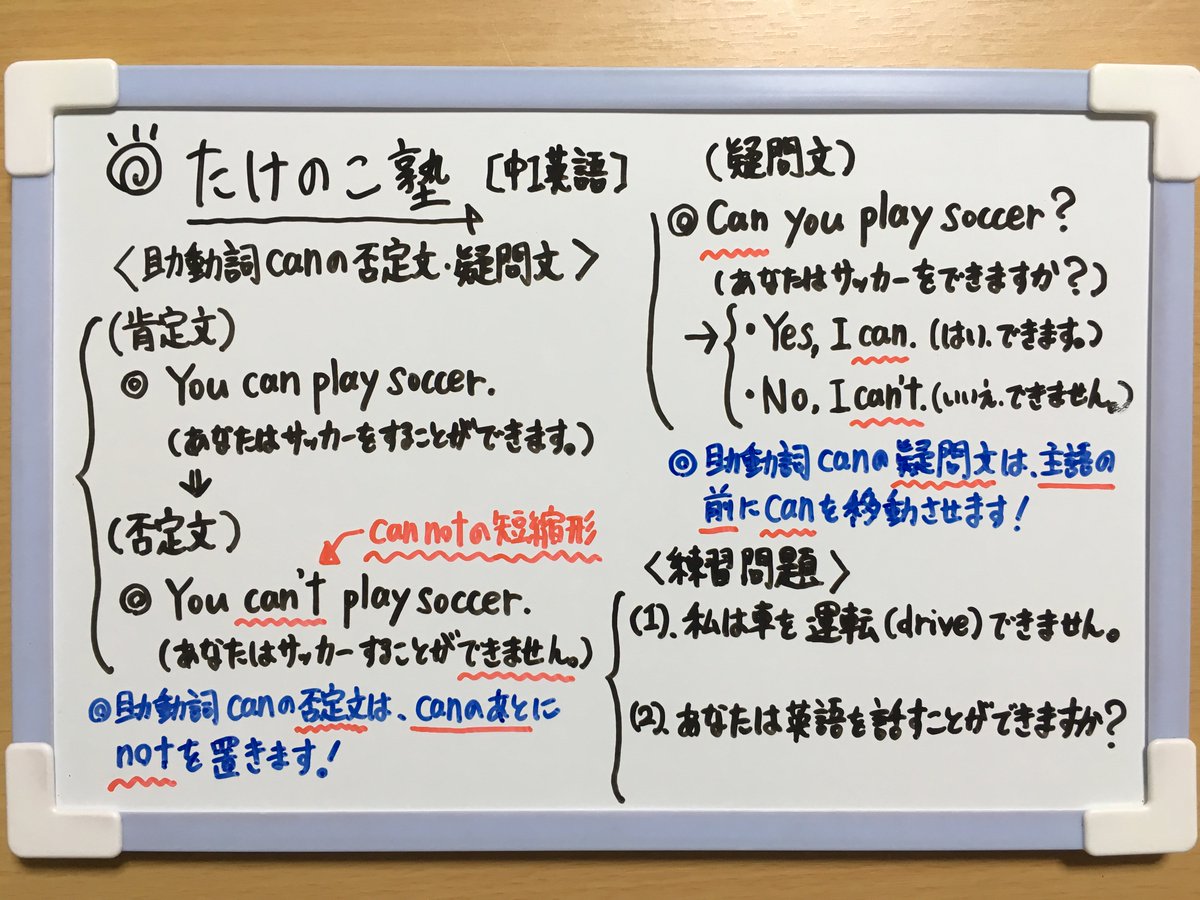 たけのこ塾 [中1英語]
<助動詞canの否定文・疑問文>
(肯定文)
◎ You can play soccer.
(あなたはサッカーをすることができます。)
⇓
(否定文)
can notの短縮形
◎ You can't play soccer.
(あなたはサッカーすることができません。)
◎助動詞canの否定文は、canのあとに
notを置きます!
(疑問文)
◎ Can you play soccer?
(あなたはサッカーをできますか?)
→ ・Yes, I can. (はい、できます。)
・No, I can't. (いいえ、できません。)
◎ 助動詞canの疑問文は、主語の
前にcanを移動させます!
<練習問題>
(1). 私は車を運転(drive)できません。
(2). あなたは英語を話すことができますか?